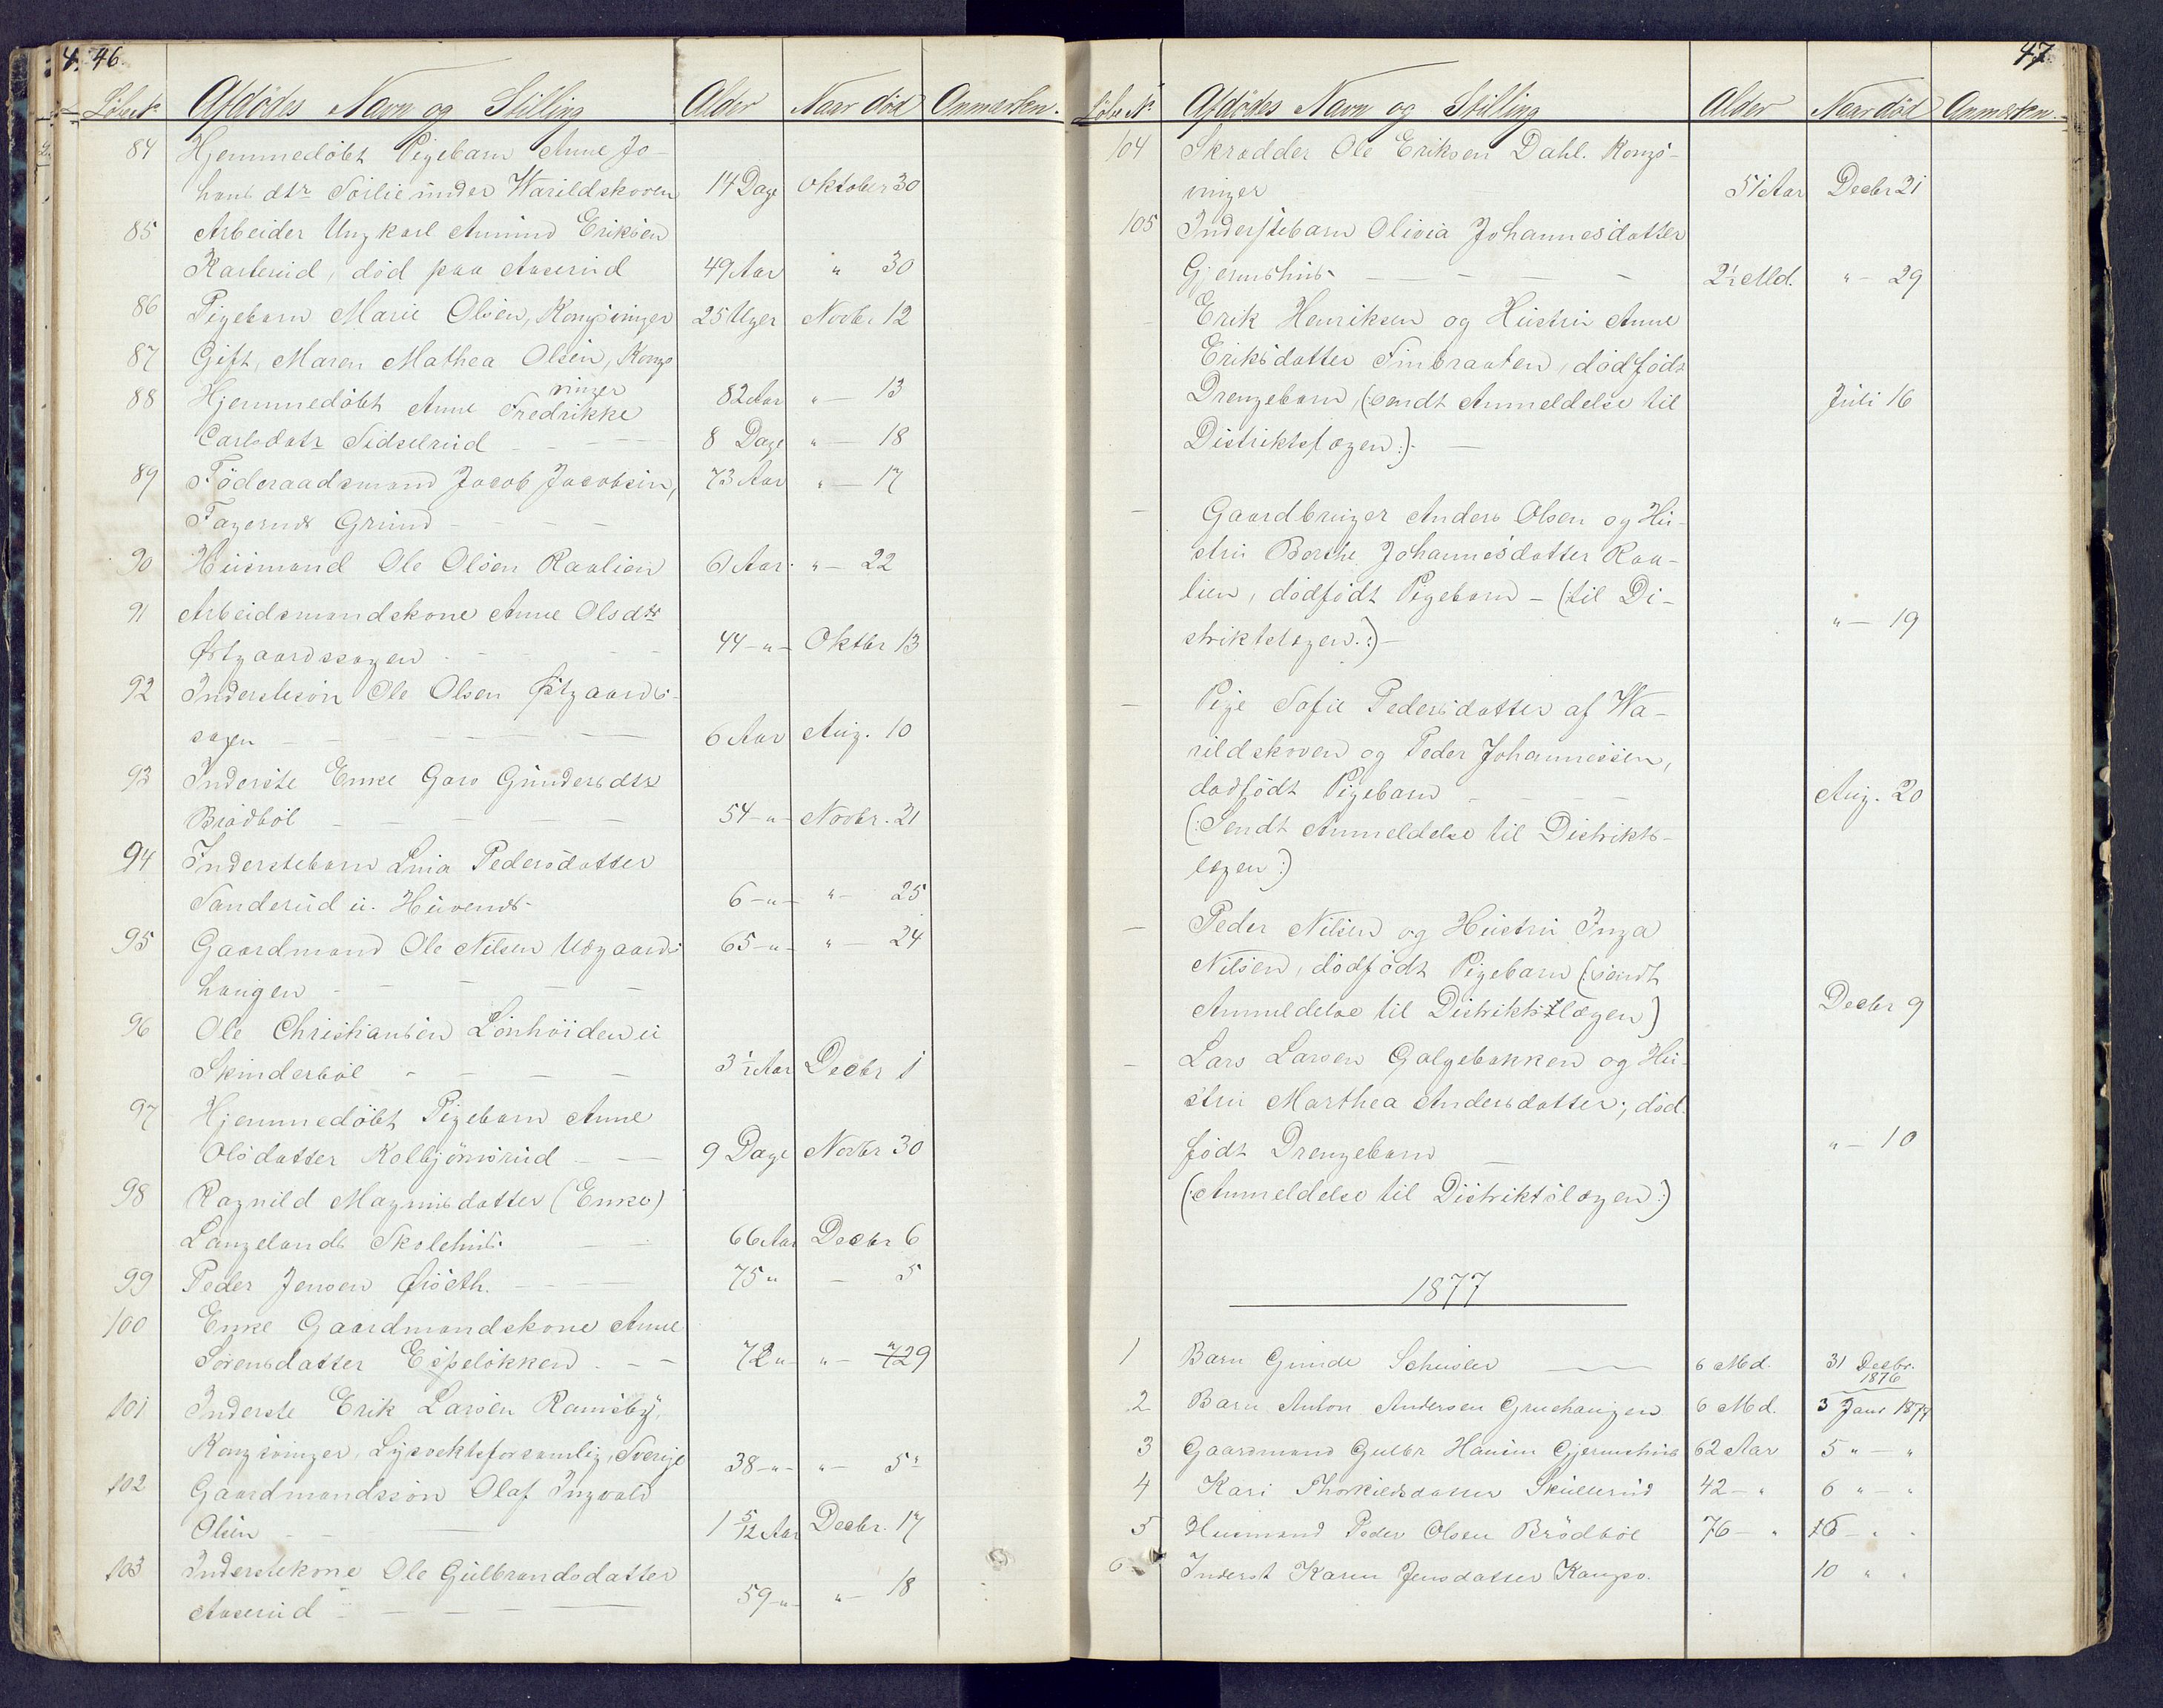 46.
Løbe № Afdødes Navn og Stilling Alder Naar død Anmærkn.
84 Hjemmedøbt Pigebarn Anne Jo-
hans dtr Sørlie under Warildskoven 14 Dage Oktober 30
85 Arbeider Ungkarl Amund Eriksen
Karterud, død paa Aaserud 49 Aar " 30
86 Pigebarn Marie Olsen, Kongsvinger 25 Uger Novbr. 12
87 Gift, Maren Mathea Olsen, Kongs
vinger 82 Aar " — 13
88 Hjemmedøbt Anne Fredrikke
Carlsdatr Sidselrud — — — 8 Dage " — 18
89 Föderaadsmand Jacob Jacobsen, 73 Aar " — 17
Fagernes Grund — — —
90 Huusmand Ole Olsen Raalien 6 Aar. " — 22
91 Arbeidsmandskone Anne Olsdtr
Østgaardssagen — — — 44 — " — Oktbr 13
92 Inderstesøn Ole Olsen Østgaards-
sagen — — — — — 6 Aar Aug. 10
93 Inderste Enke Goro Gundersdtr
Brødbøl — — — — 54 — " — Novbr. 21
94 Inderstebarn Lina Pedersdatter
Sanderud u. Huvenes — 6 — " — " — 25
95 Gaardmand Ole Nilsen Udgaards 65 — " — " — 24
haugen — — — —
96 Ole Christiansen Lønhöiden u
Skinderböl — — — — 3½ Aar Decbr 1
97 Hjemmedøbt Pigebarn Anne
Olsdatter Kolbjörnsrud — — 9 Dage Novbr 30
98 Ragnild Magnusdatter (Enke)
Langelands Skolehus. — 66 Aar Decbr 6
99 Peder Jensen Øiseth. — — — 75 " — 5
100 Enke Gaardmandskone Anne
Sørensdatter Espeløkken. — — 72 " — " — 29
101 Inderste Erik Larsen Ramsby,
Kongsvinger, Lysviksforsamlig, Sverige 38 — " — " — 5
102 Gaardmandssøn Olaf Ingvald
Olsen — — — 1 5/12 Aar Decbr. 17
103 Inderstekone Ole Gulbrandsdatter
Aaserud — — — — 59 — " — " — 18
47.
Løbe № Afdødes Navn og Stilling Alder Naar död Anmærkn.
104 Skrædder Ole Eriksen Dahl. Kongs-
vinger 51 Aar Decbr 21
105 Inderstebarn Olivia Johannesdatter
Gjermshus — — — — 2½ Md. " — 29
— Erik Henriksen og Hustru Anne
Eriksdatter Finbraaten, dødfödt
Drengebarn, (: sendt Anmeldelse til Juli 16
Distriktslægen :) —
— Gaardbruger Anders Olsen og Hu-
stru Berthe Johannesdatter Raa-
lien, dødfödt Pigebarn — (: til Di-
striktslægen. :) — " — 19
— Pige Sofie Pedersdatter af Wa-
rildskoven og Peder Johannessen,
dødfödt Pigebarn — — — Aug. 20
(: Sendt Anmeldelse til Distrikts-
lægen :)
— Peder Nilsen og Hustru Inga
Nilsen, dødfödt Pigebarn (: sendt
Anmeldelse til Distriktslægen) Decbr 9
— Lars Larsen Galgebakken og Hu-
stru Marthea Andersdatter, død.
födt Drengebarn — " — 10
(: Anmeldelse til Distriktslægen :)
1877
1 Barn Gunda Schüsler — — 6 Md. 31 Decbr.
1876
2 Barn Anton Andersen Gruehaugen 6 Md. 3 Janr 1877
3 Gaardmand Gulbr Hansen Gjermshus 62 Aar 5 " — "
4 Kari Thorkildsdatter Skullerud 42 — " 6 " — "
5 Husmand Peder Olsen Brödböl 76 — " 16 — " "
6 Inderst Karen Jensdatter Kongsv. 10 " "